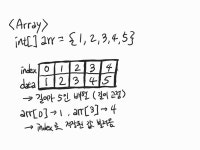 <Array>
int[] arr = {1, 2, 3, 4, 5}
index 0 1 2 3 4
data 1 2 3 4 5
→ 길이가 5인 배열 (길이 고정)
arr[0] → 1, arr[3] → 4
→ index로 저장된 값 불러옴